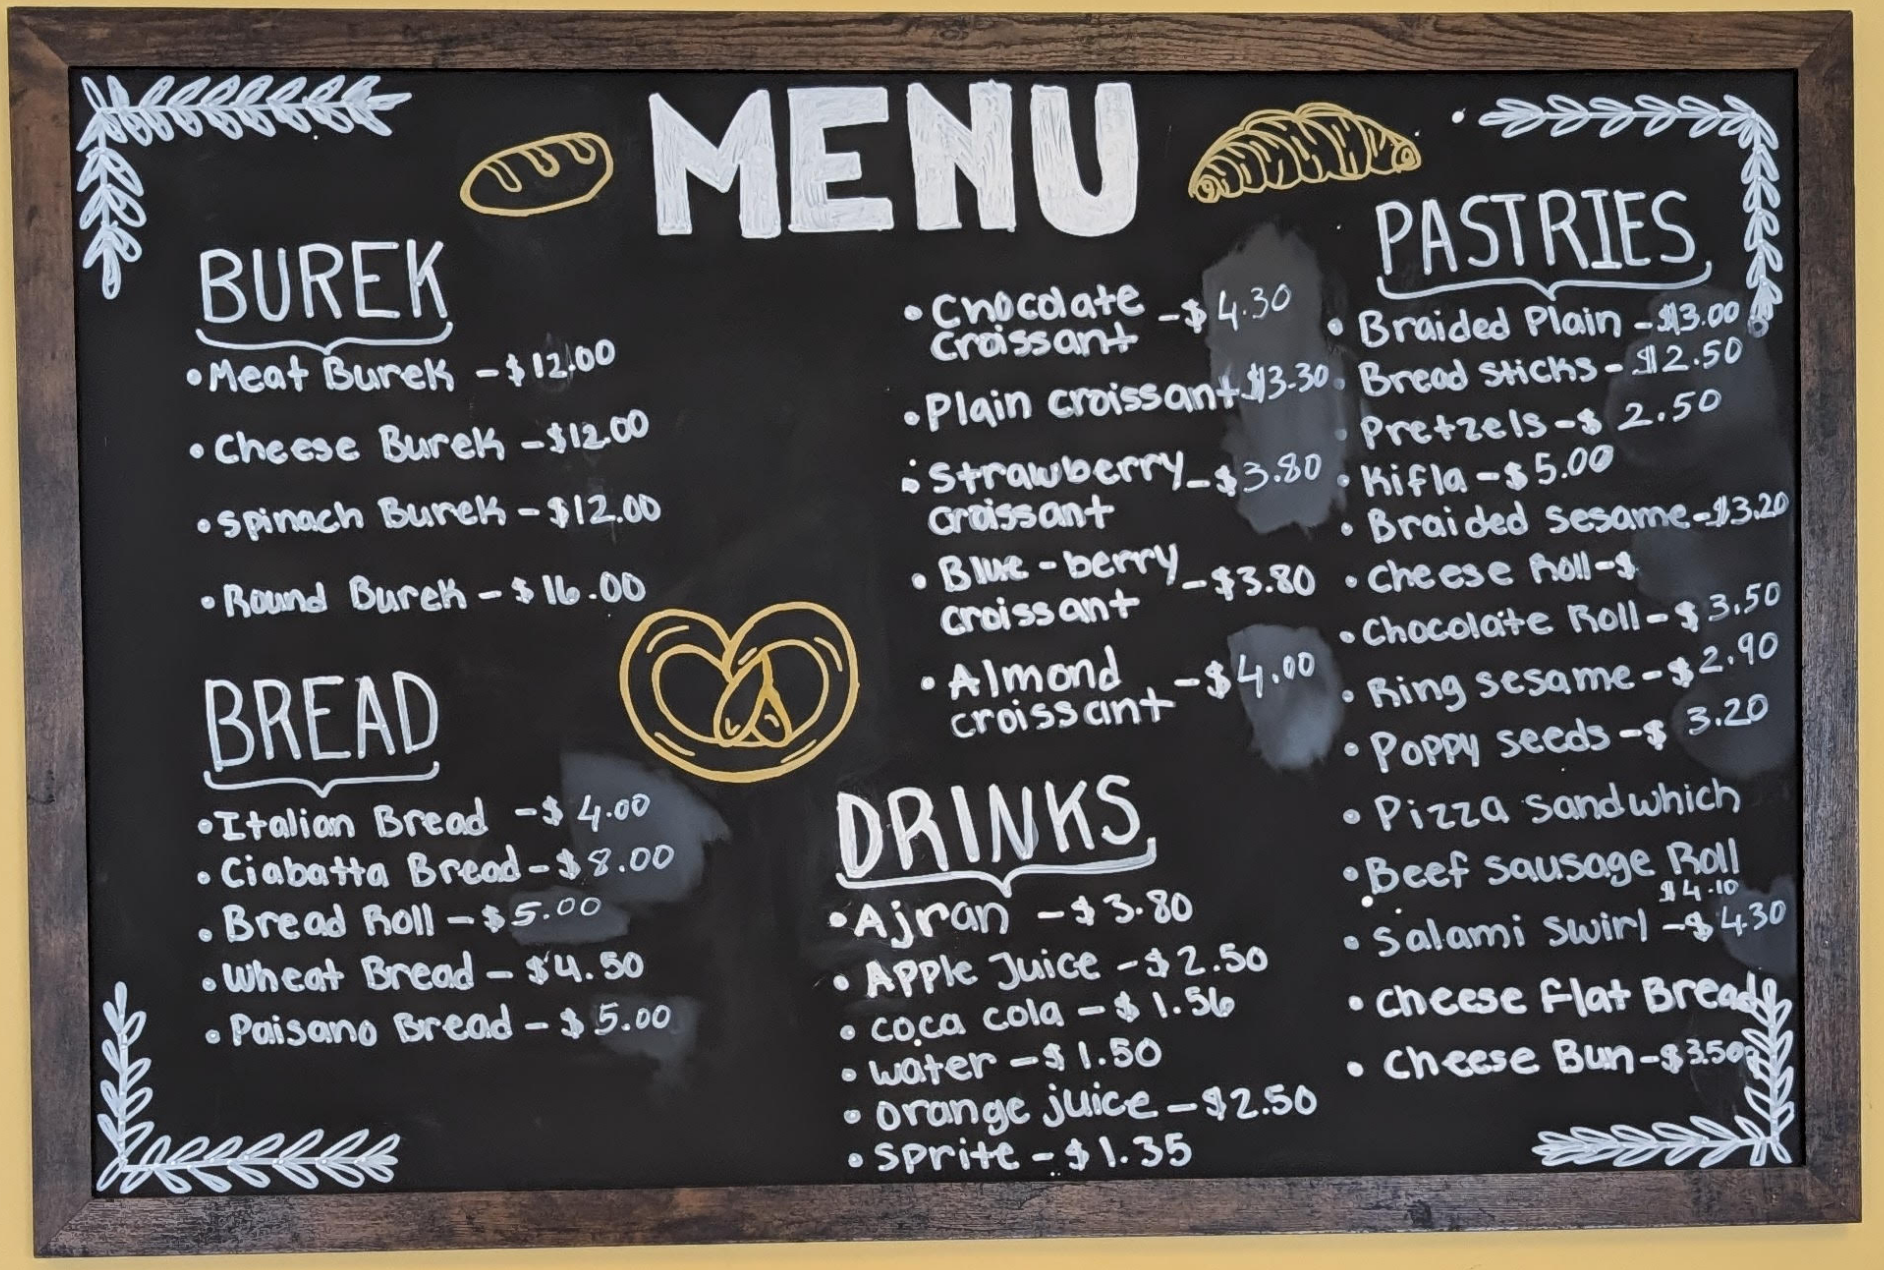 MENU
BUREK
• Meat Burek - $12.00
• Cheese Burek - $12.00
• Spinach Burek - $12.00
• Round Burek - $16.00
BREAD
• Italian Bread - $4.00
• Ciabatta Bread - $8.00
• Bread Roll - $5.00
• Wheat Bread - $4.50
• Paisano Bread - $5.00
• Chocolate - $4.30
Croissant
• Plain croissant - $3.30
• Strawberry - $3.80
croissant
• Blue-berry - $3.80
croissant
• Almond - $4.00
croissant
DRINKS
• Ajran - $3.80
• Apple Juice - $2.50
• coca cola - $1.56
• water - $1.50
• orange juice - $2.50
• Sprite - $1.35
PASTRIES
• Braided Plain - $3.00
• Bread sticks - $2.50
• Pretzels - $2.50
• Kifla - $5.00
• Braided sesame - $3.20
• Cheese Roll - $
• Chocolate Roll - $3.50
• Ring sesame - $2.90
• Poppy seeds - $3.20
• Pizza Sandwhich
• Beef sausage Roll
$4.10
• Salami swirl - $4.30
• Cheese Flat Bread
• Cheese Bun - $3.50